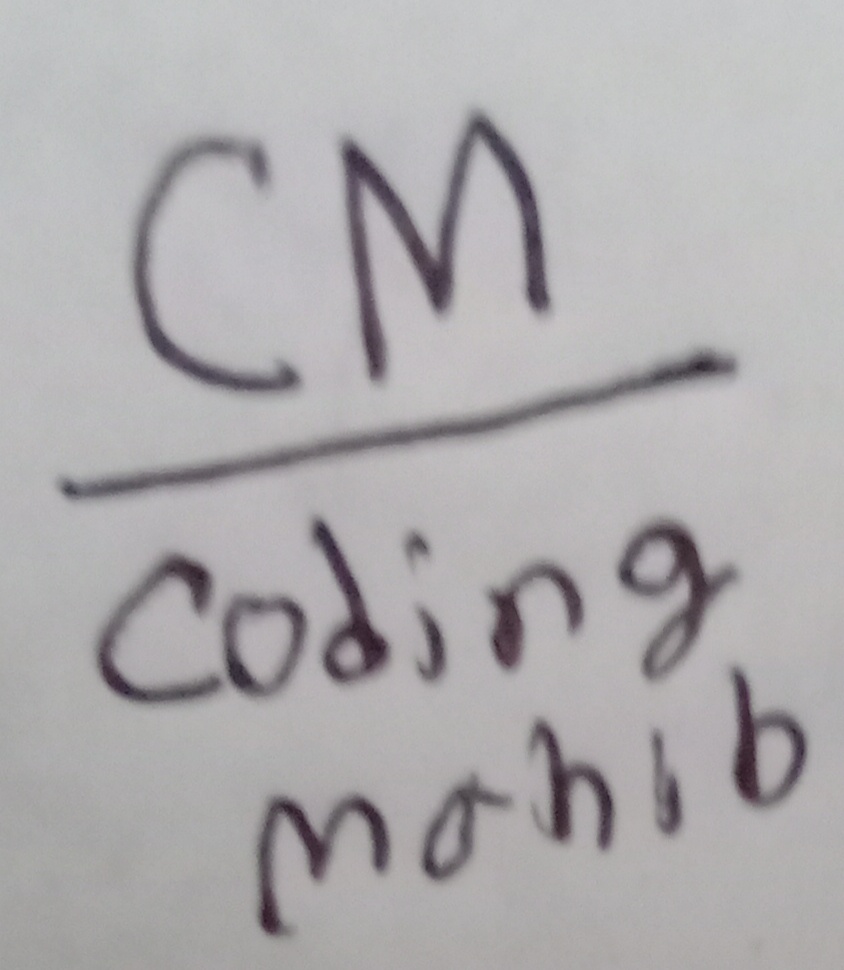 CM
Coding
Mohib